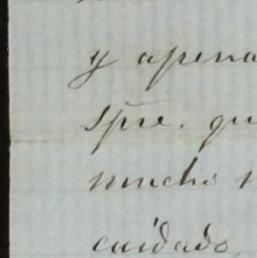 y apena
spre. qu
mucho
cuidado,